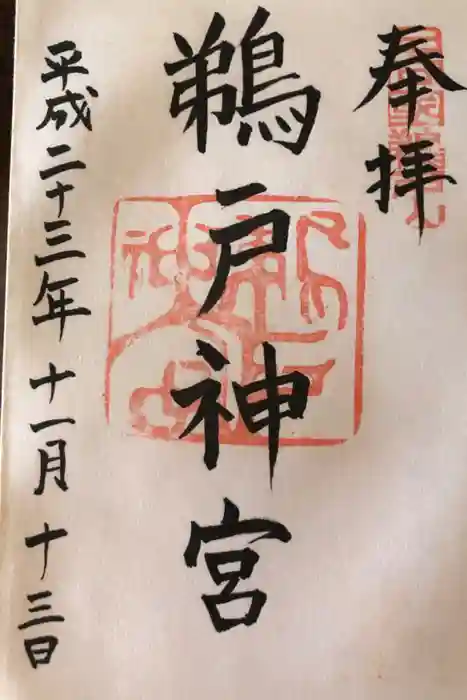 奉拝
鵜戸神宮
平成二十三年十一月十三日